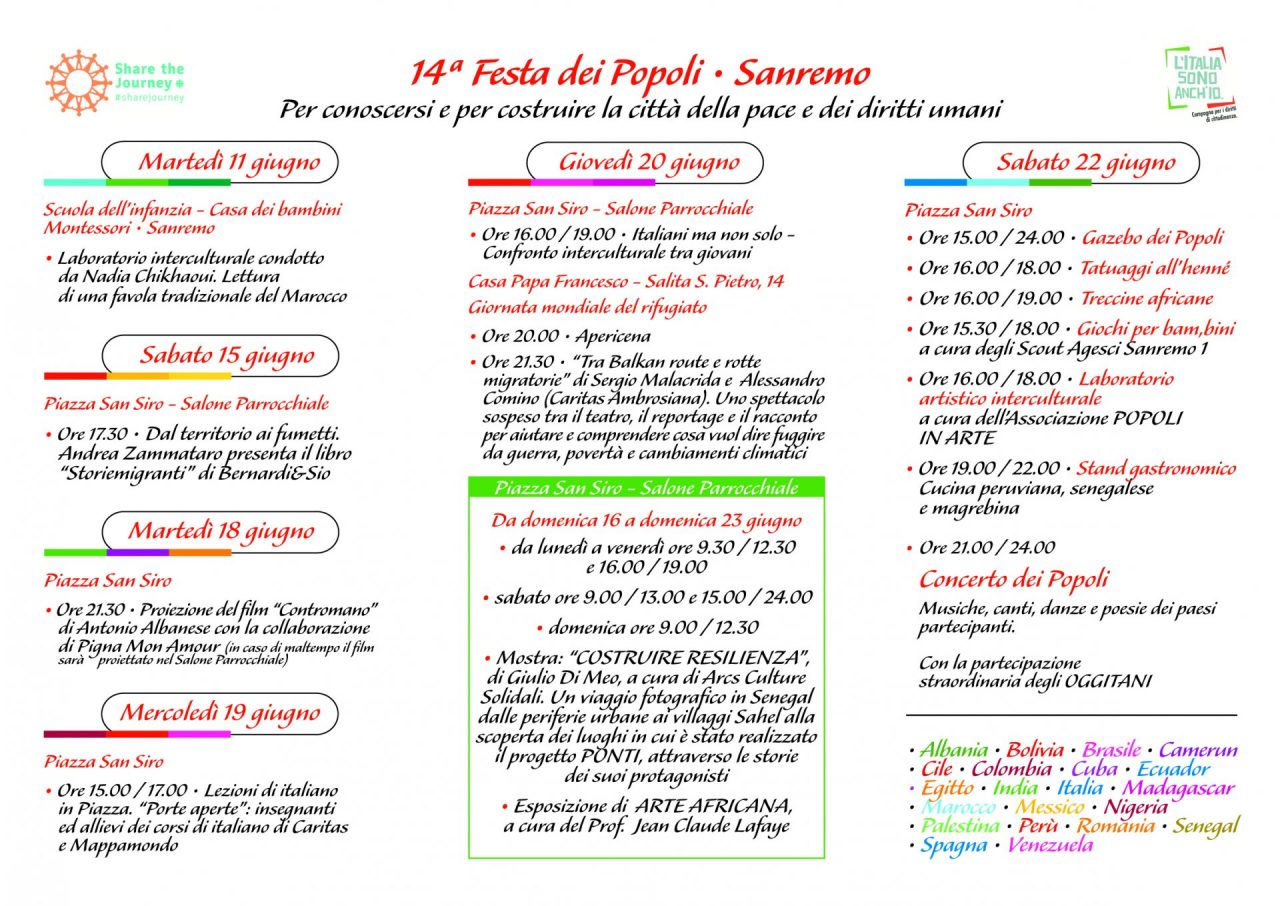 Share the
Journey
#sharejourney
14ª Festa dei Popoli • Sanremo
Per conoscersi e per costruire la città della pace e dei diritti umani
L'ITALIA
SONO
ANCH'IO.
Campagna per i diritti
di cittadinanza.
Martedì 11 giugno
Scuola dell'infanzia – Casa dei bambini
Montessori • Sanremo
• Laboratorio interculturale condotto
da Nadia Chikhaoui. Lettura
di una favola tradizionale del Marocco
Sabato 15 giugno
Piazza San Siro – Salone Parrocchiale
• Ore 17.30 • Dal territorio ai fumetti.
Andrea Zammataro presenta il libro
“Storiemigranti” di Bernardi&Sio
Martedì 18 giugno
Piazza San Siro
• Ore 21.30 • Proiezione del film “Contromano”
di Antonio Albanese con la collaborazione
di Pigna Mon Amour (in caso di maltempo il film
sarà proiettato nel Salone Parrocchiale)
Mercoledì 19 giugno
Piazza San Siro
• Ore 15.00 / 17.00 • Lezioni di italiano
in Piazza. “Porte aperte”: insegnanti
ed allievi dei corsi di italiano di Caritas
e Mappamondo
Giovedì 20 giugno
Piazza San Siro – Salone Parrocchiale
• Ore 16.00 / 19.00 • Italiani ma non solo –
Confronto interculturale tra giovani
Casa Papa Francesco – Salita S. Pietro, 14
Giornata mondiale del rifugiato
• Ore 20.00 • Apericena
• Ore 21.30 • “Tra Balkan route e rotte
migratorie” di Sergio Malacrida e Alessandro
Comino (Caritas Ambrosiana). Uno spettacolo
sospeso tra il teatro, il reportage e il racconto
per aiutare e comprendere cosa vuol dire fuggire
da guerra, povertà e cambiamenti climatici
Piazza San Siro – Salone Parrocchiale
Da domenica 16 a domenica 23 giugno
• da lunedì a venerdì ore 9.30 / 12.30
e 16.00 / 19.00
• sabato ore 9.00 / 13.00 e 15.00 / 24.00
• domenica ore 9.00 / 12.30
• Mostra: “COSTRUIRE RESILIENZA”,
di Giulio Di Meo, a cura di Arcs Culture
Solidali. Un viaggio fotografico in Senegal
dalle periferie urbane ai villaggi Sahel alla
scoperta dei luoghi in cui è stato realizzato
il progetto PONTI, attraverso le storie
dei suoi protagonisti
• Esposizione di ARTE AFRICANA,
a cura del Prof. Jean Claude Lafaye
Sabato 22 giugno
Piazza San Siro
• Ore 15.00 / 24.00 • Gazebo dei Popoli
• Ore 16.00 / 18.00 • Tatuaggi all'henné
• Ore 16.00 / 19.00 • Treccine africane
• Ore 15.30 / 18.00 • Giochi per bam,bini
a cura degli Scout Agesci Sanremo 1
• Ore 16.00 / 18.00 • Laboratorio
artistico interculturale
a cura dell'Associazione POPOLI
IN ARTE
• Ore 19.00 / 22.00 • Stand gastronomico
Cucina peruviana, senegalese
e magrebina
• Ore 21.00 / 24.00
Concerto dei Popoli
Musiche, canti, danze e poesie dei paesi
partecipanti.
Con la partecipazione
straordinaria degli OGGITANI
• Albania • Bolivia • Brasile • Camerun
• Cile • Colombia • Cuba • Ecuador
• Egitto • India • Italia • Madagascar
• Marocco • Messico • Nigeria
• Palestina • Perù • Romania • Senegal
• Spagna • Venezuela